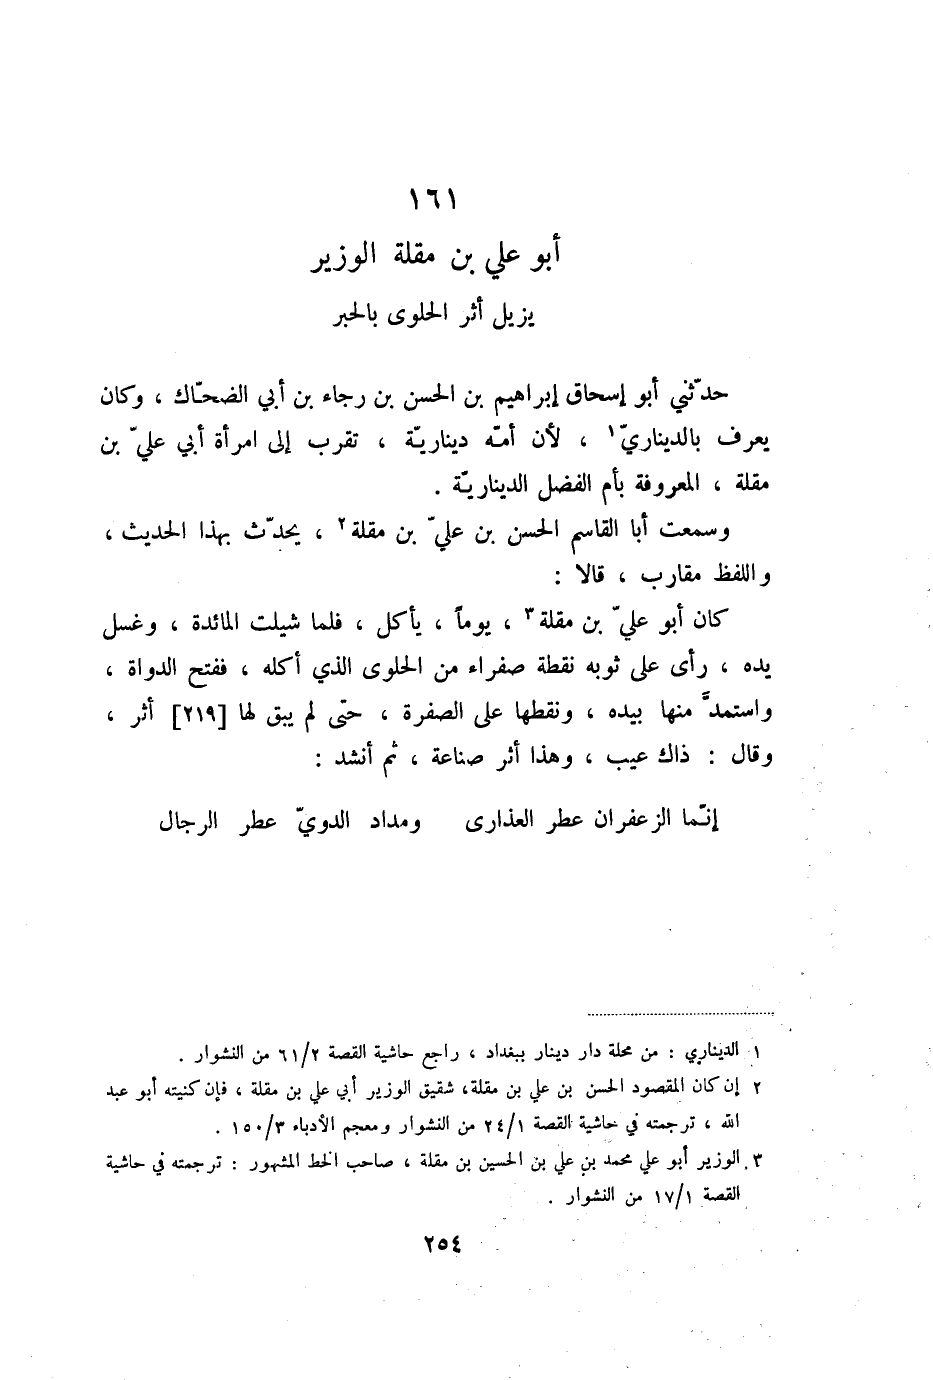 ١٦١
أبو علي بن مقلة الوزير
يزيل أثر الحلوى بالحبر
حدّثني أبو إسحاق إبراهيم بن الحسن بن رجاء بن أبي الضحّاك ، وكان
يعرف بالديناريّ١ ، لأن أمّه ديناريّة ، تقرب إلى امرأة أبي عليّ بن
مقلة ، المعروفة بأم الفضل الديناريّة .
وسمعت أبا القاسم الحسن بن عليّ بن مقلة٢ ، يحدّث بهذا الحديث ،
واللفظ مقارب ، قالا :
كان أبو عليّ بن مقلة٣ ، يوماً ، يأكل ، فلما شيلت المائدة ، وغسل
يده ، رأى على ثوبه نقطة صفراء من الحلوى الذي أكله ، ففتح الدواة ،
واستمدَّ منها بيده ، ونقطها على الصفرة ، حتّى لم يبق لها [٢١٩] أثر ،
وقال : ذاك عيب ، وهذا أثر صناعة ، ثم أنشد :
إنّما الزعفران عطر العذارى ومداد الدويّ عطر الرجال
١ الديناري : من محلة دار دينار ببغداد ، راجع حاشية القصة ٦١/٢ من النشوار .
٢ إن كان المقصود الحسن بن علي بن مقلة، شقيق الوزير أبي علي بن مقلة ، فإن كنيته أبو عبد
الله ، ترجمته في حاشية القصة ٢٤/١ من النشوار ومعجم الأدباء ١٥٠/٣ .
٣ الوزير أبو علي محمد بن علي بن الحسين بن مقلة ، صاحب الخط المشهور : ترجمته في حاشية
القصة ١٧/١ من النشوار .
٢٥٤